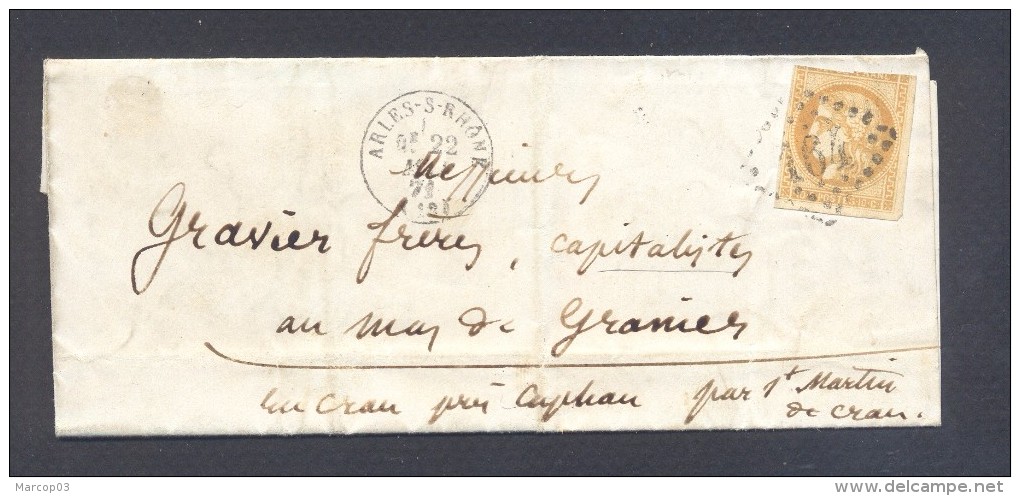 ARLES-S-RHÔNE
22
71
Messieurs
Gravier frères, capitalistes
au mas de Granier
en Crau près Caphan par St Martin
de Crau.
Marcop03